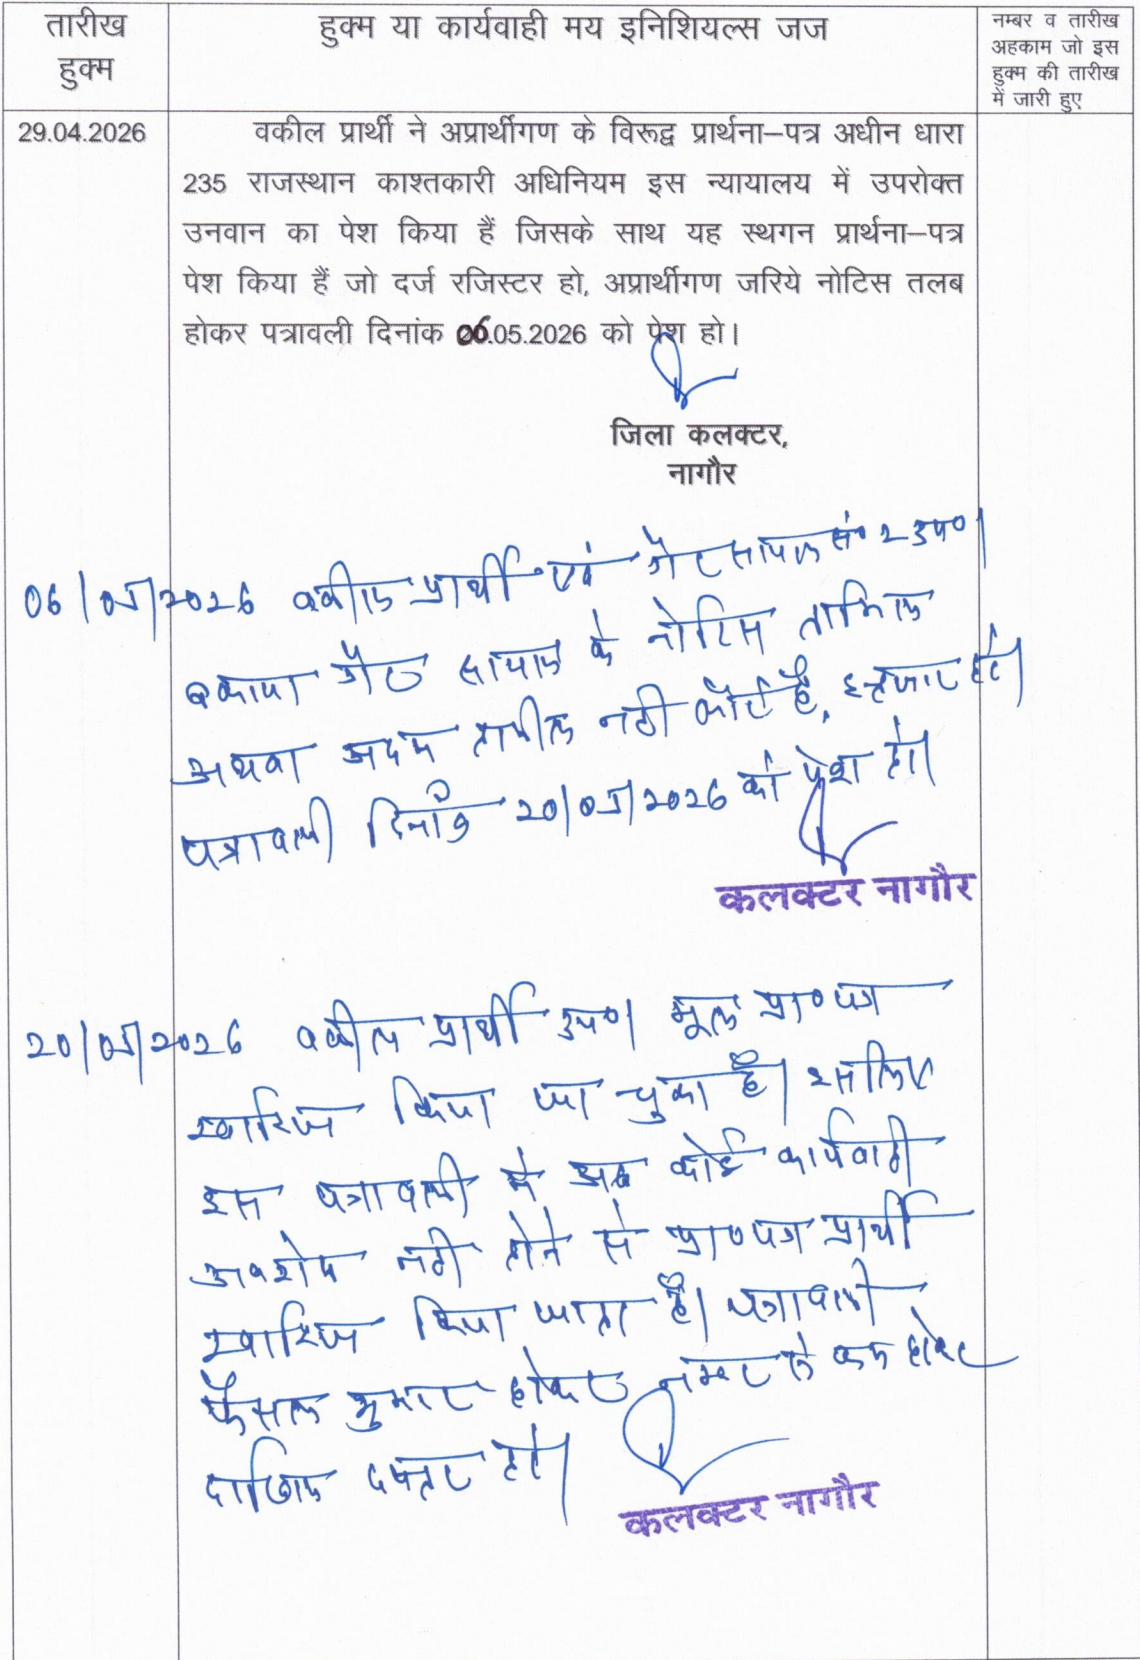 तारीख
हुक्म
हुक्म या कार्यवाही मय इनिशियल्स जज
नम्बर व तारीख
अहकाम जो इस
हुक्म की तारीख
में जारी हुए
29.04.2026
वकील प्रार्थी ने अप्रार्थीगण के विरूद्व प्रार्थना–पत्र अधीन धारा
235 राजस्थान काश्तकारी अधिनियम इस न्यायालय में उपरोक्त
उनवान का पेश किया हैं जिसके साथ यह स्थगन प्रार्थना–पत्र
पेश किया हैं जो दर्ज रजिस्टर हो, अप्रार्थीगण जरिये नोटिस तलब
होकर पत्रावली दिनांक 06.05.2026 को पेश हो।
जिला कलक्टर,
नागौर
06/05/2026 वकील प्रार्थी एवं गैरसायल सं० 2 उप०।
बकाया गैर सायल के नोटिस तामिल
अथवा अदम तामील नही लौटे है, इन्तजार हो।
पत्रावली दिनांक 20/05/2026 को पेश हो।
कलक्टर नागौर
20/05/2026 वकील प्रार्थी उप०। मूल प्रा०पत्र
खारिज किया जा चुका है। इसलिए
इस पत्रावली में अब कोई कार्यवाही
अवशेष नही होने से प्रा०पत्र प्रार्थी
खारिज किया जाता है। पत्रावली
फैसल शुमार होकर नम्बर से कम होकर
दाखिल दफ्तर हो।
कलक्टर नागौर